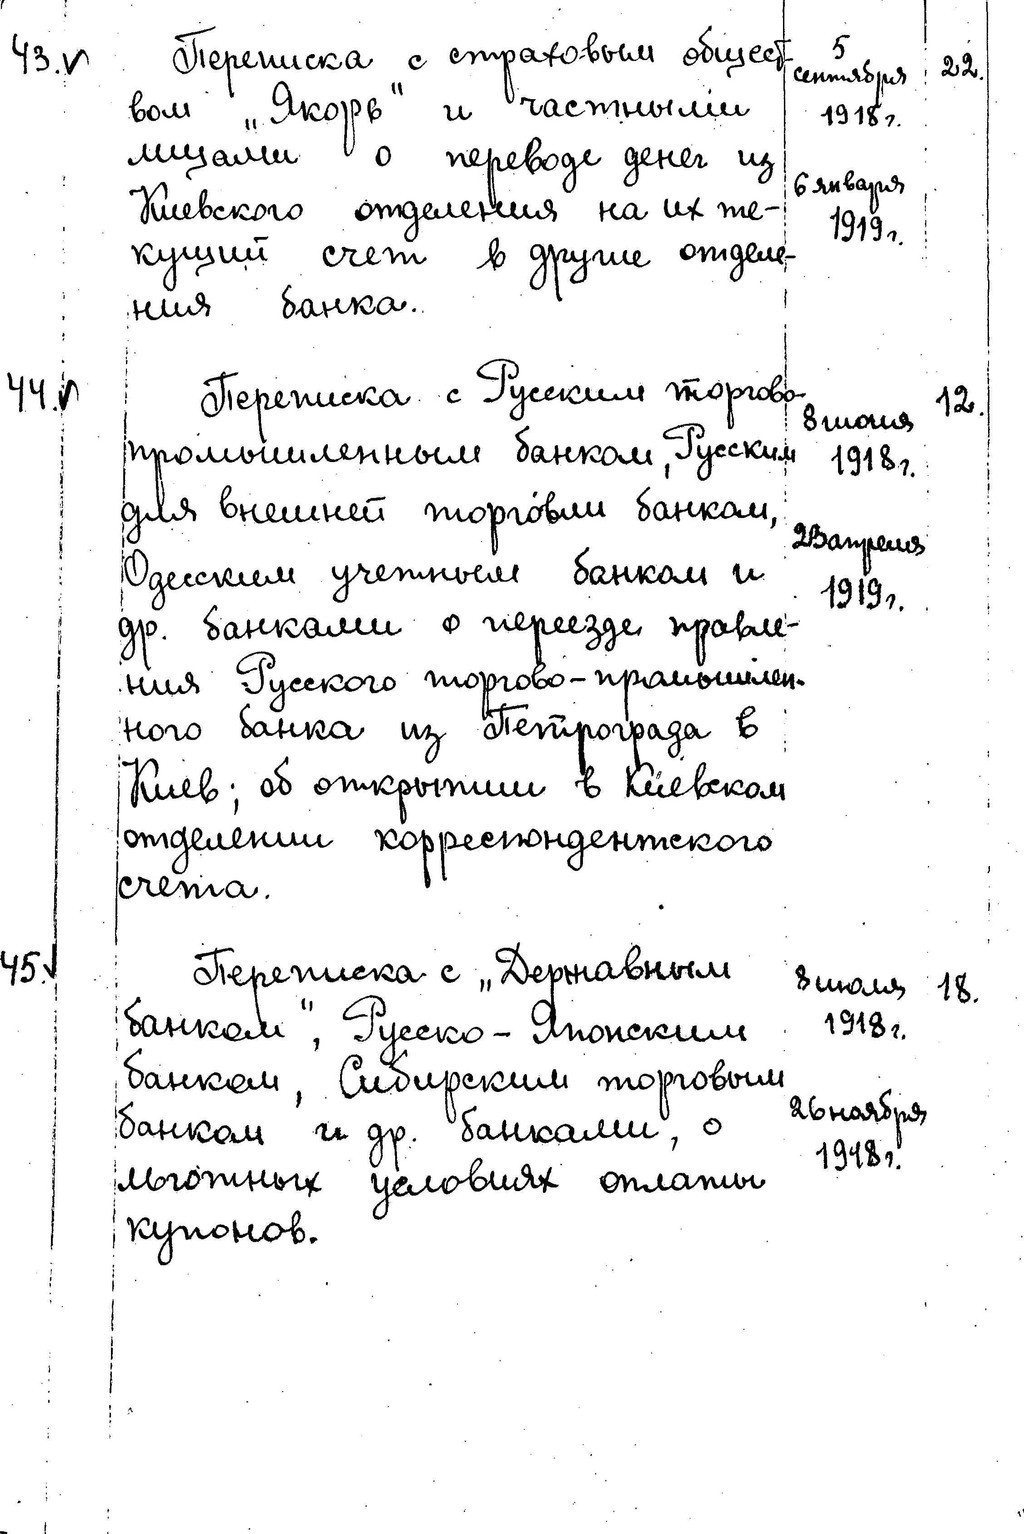 43. Переписка с страховым общест- 5 сентября 1918 г. 22.
вом „Якорь" и частными
лицами о переводе денег из 6 января
Киевского отделения на их те- 1919 г.
кущий счет в другие отделе-
ния банка.
44. Переписка с Русским торгово- 12.
8 июня
промышленным банком, Русским 1918 г.
для внешней торговли банком,
23 апреля
Одесским учетным банком и 1919 г.
др. банками о переезде правле-
ния Русского торгово-промышлен-
ного банка из Петрограда в
Киев; об открытии в Киевском
отделении корреспондентского
счета.
45. Переписка с „Державным 8 июля 18.
банком", Русско-Японским 1918 г.
банком, Сибирским торговым
банком и др. банками, о 26 ноября
льготных условиях оплаты 1918 г.
купонов.